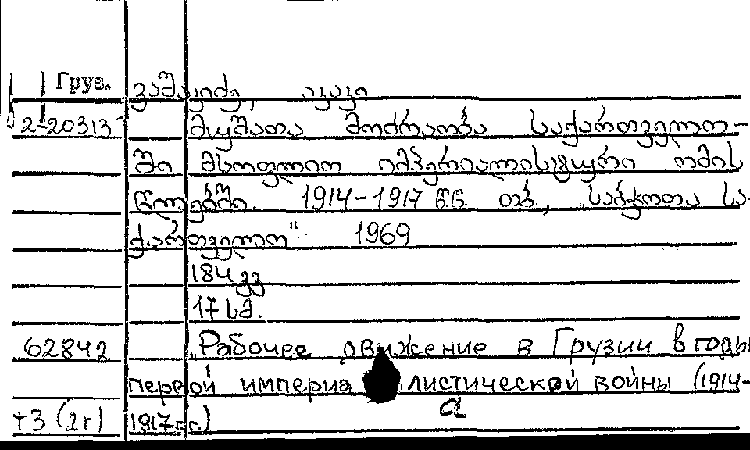 Груз. ვაშაკიძე, აკაკი
2-20313 მუშათა მოძრაობა საქართველო-
ში მსოფლიო იმპერიალისტური ომის
წლებში. 1914-1917 წწ. თბ., საბჭოთა სა-
ქართველო" 1969
184 გვ
17 სმ.
62842 Рабочее движение в Грузии в годы
первой империалистической войны (1914-
т3 (2г) 1917 г.г.) a